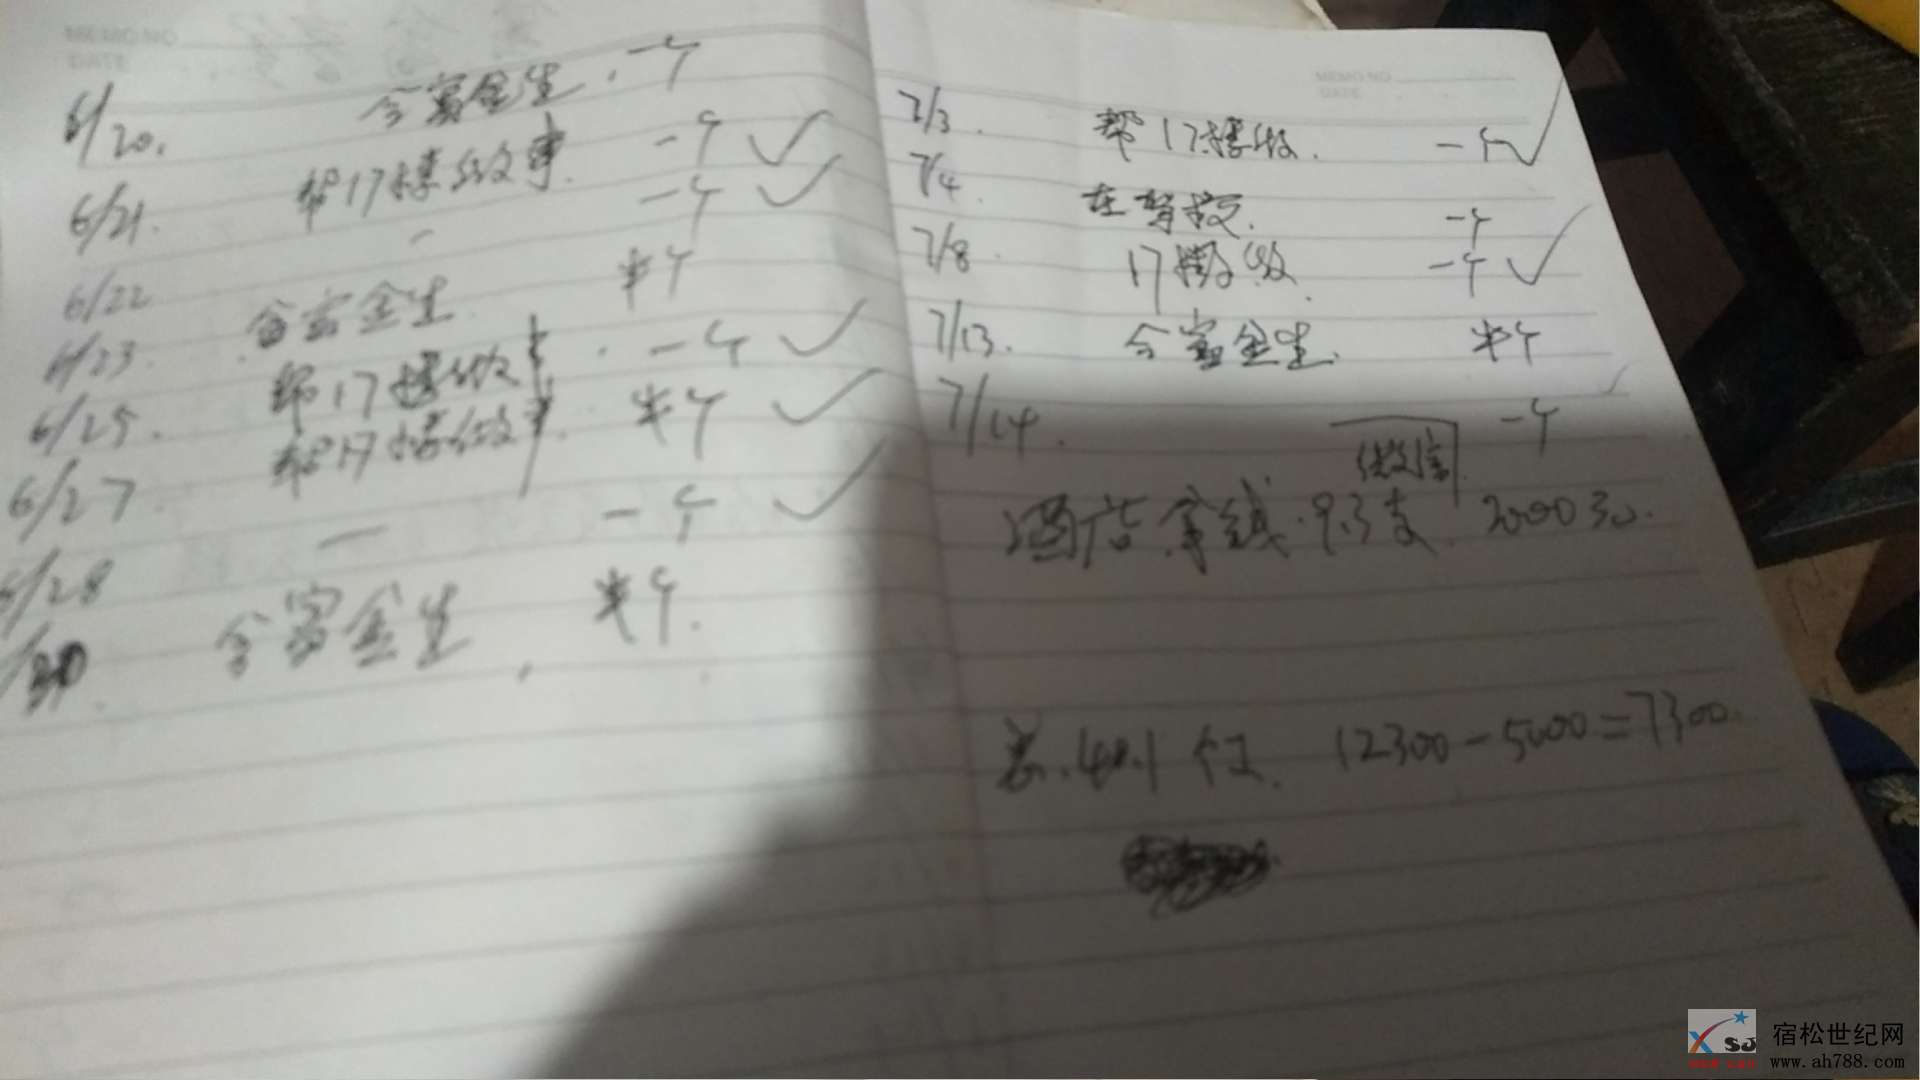 MEMO NO
DATE
6/20. 合富金生. 一个
6/21. 帮17楼做事. 一个 ✓
6/22 一 一个 ✓
6/23. 合富金生. 半个
6/25. 帮17楼做事. 一个 ✓
6/27 帮17楼做事. 半个 ✓
6/28 一 一个 ✓
/30. 合富金生. 半个.
MEMO NO
DATE
7/3. 帮17楼做. 一个 ✓
7/4. 在驾校. 一个
7/8. 17楼做. 一个 ✓
7/13. 合富金生. 半个
7/14. 一个
微信
酒店拿钱. 9.3支 2000元.
12300-5000=7300.
XSJ
宿松世纪网
www.ah788.com